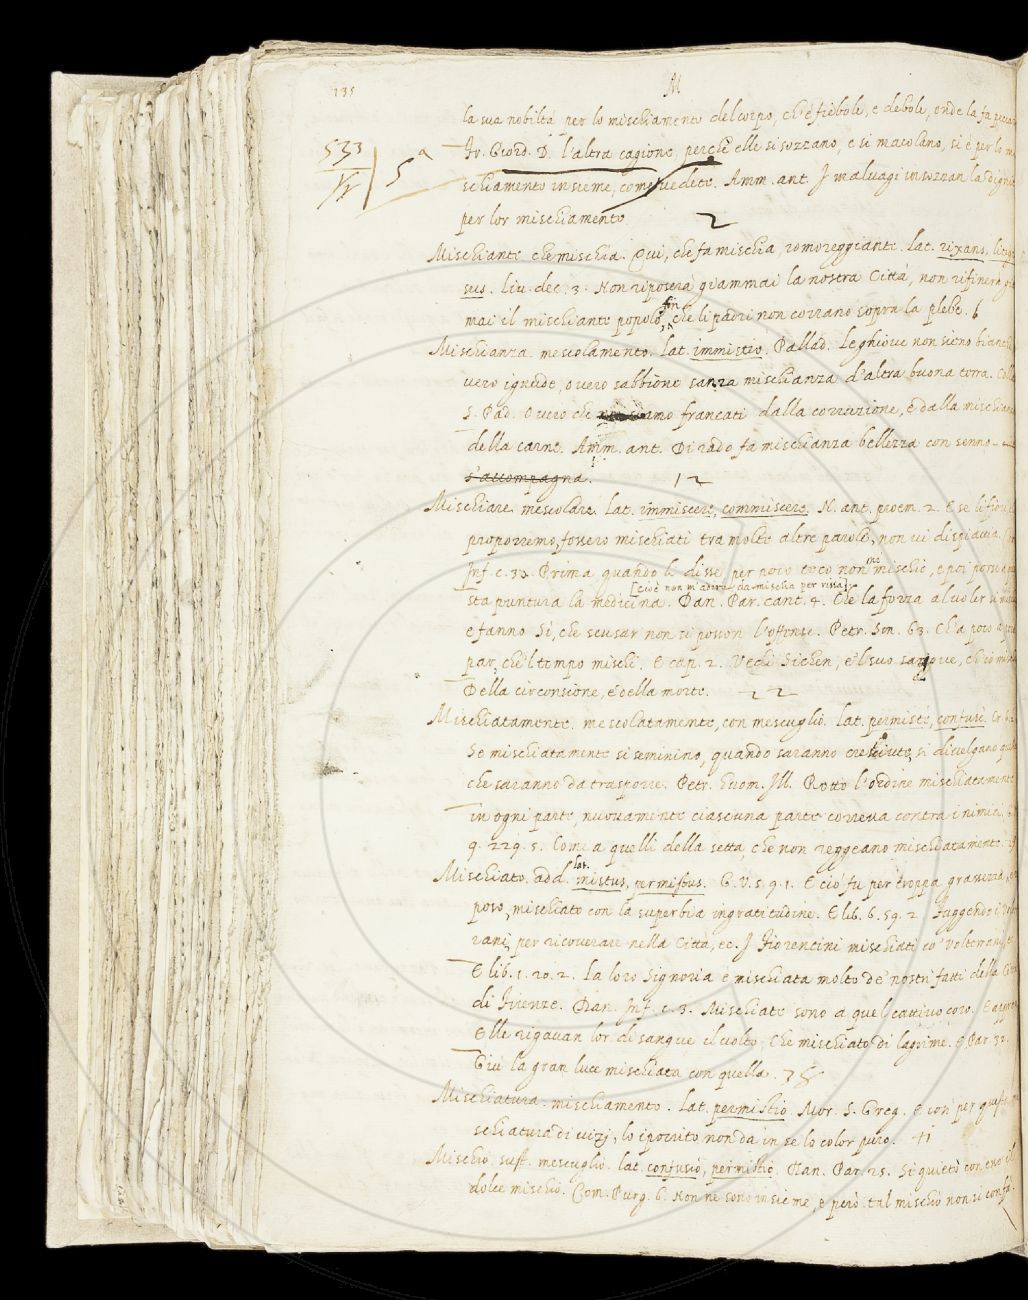 135
M
la sua nobiltà per lo mischiamento del corpo, ch'è fiebole, e debole, onde la fa
533 5 a
Fr. Giord. D. l'altra cagione, perchè elle si sozzano, e si macolano, si è per lo
schiamento insieme, come vedete. Amm. ant. I malvagi insozzan la
per lor mischiamento 2
Mischiante che mischia. Qui, che fa mischia, romoreggiante. lat. rixans,
sus. Liv. dec. 3. Non riposerà giammai la nostra Città, non rifinerà
mai il mischiante popolo, fin che li padri non corrano sopra la plebe. 6
Mischianza. mescolamento. lat. immistio. Pallad. Le ghiove non sieno
vero ignude, o vero sabbione sanza mischianza d'altra buona terra.
S. Pad. O vero che siamo francati dalla corruzione, e dalla
della carne. Amm. ant. Di rado fa mischianza bellezza con senno.
s'accompagna. 12
Mischiare. mescolare. Lat. immiscere, commiscere. N. ant. proem. 2. E se
proporremo, fossero mischiati tra molte altre parole, non vi dispiaccia.
Inf. c. 31. Prima quando le disse per poco teco non me mischio, e poi
[cioè non m'adiro da mischia per rissa]
sta puntura la medicina. Dan. Par. cant. 4. Che la forza al voler si
e fanno Sì, che scusar non si posson l'offense. Petr. Son. 63. Ch'a poco a
par, che'l tempo mischi. E cap. 2. Vedi Sichen, e'l suo sangue, ch'è
Della circonsione, e della morte. 22
Mischiatamente. mescolatamente, con mescuglio. lat. permiste, confuse.
Se mischiatamente si seminino, quando saranno cresciute, si divelgano
che saranno da trasporre. Petr. huom. Ill. Rotto l'ordine mischiatamente
in ogni parte, nuovamente ciascuna parte correva contra i nimici.
9. 229. 5. Come a quelli della setta, che non reggeano mischiatamente.
Mischiato. add. lat. mistus, permistus. G. V. 5. 9. 1. E ciò fu per troppa grassezza,
poso, mischiato con la superbia ingratitudine. E lib. 6. 59. 2. Fuggendo i
rani, per ricoverare nella Città, ec. I Fiorentini mischiati co' Volterrani,
E lib. 1. 20. 2. La loro Signoria è mischiata molto de' nostri fatti della
di Firenze. Dan. Inf. c. 3. Mischiate sono a quel cattivo coro. E
Elle rigavan lor di sangue il volto, Che mischiato di lagrime. E Par. 32.
Giù la gran luce mischiata con quella. 35
Mischiatura. mischiamento. Lat. permistio. Mor. S. Greg. E così per
schiatura di vizj, lo ipocrito non da in se lo color puro. 41
Mischio. sust. mescuglio. lat. confusio, permistio. Dan. Par. 25. Si quietò con esso il
dolce mischio. Com. Purg. 6. Non ne sono insieme, e però tal mischio non si confà.